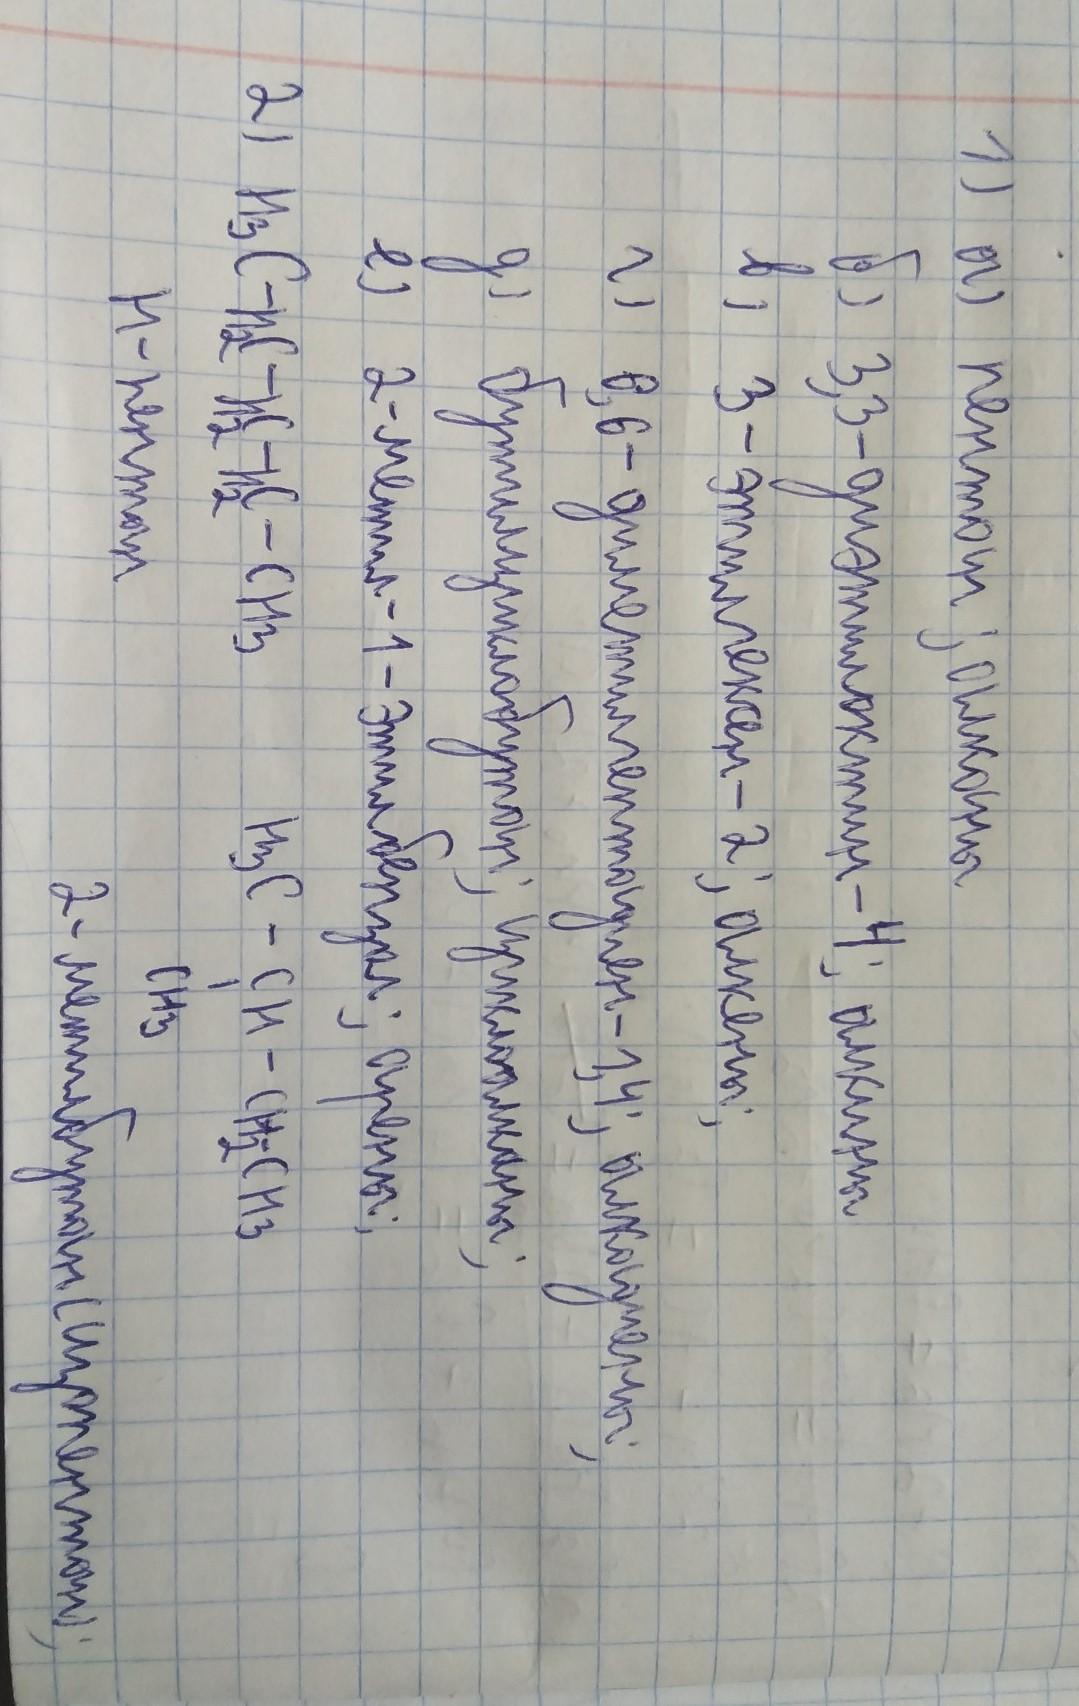 1) а) пентан; алканы
б) 3,3-диэтилоктин-4; алкины
в) 3-этилгексен-2; алкены;
г) 6,6-диметилгептадиен-1,4; алкадиены;
д) бутилциклобутан; циклоалканы;
е) 2-метил-1-этилбензол; арены;
2) H3C-H2C-H2C-H2C-CH3 H3C-CH-CH2-CH3
CH3
н-пентан
2-метилбутан (изопентан);